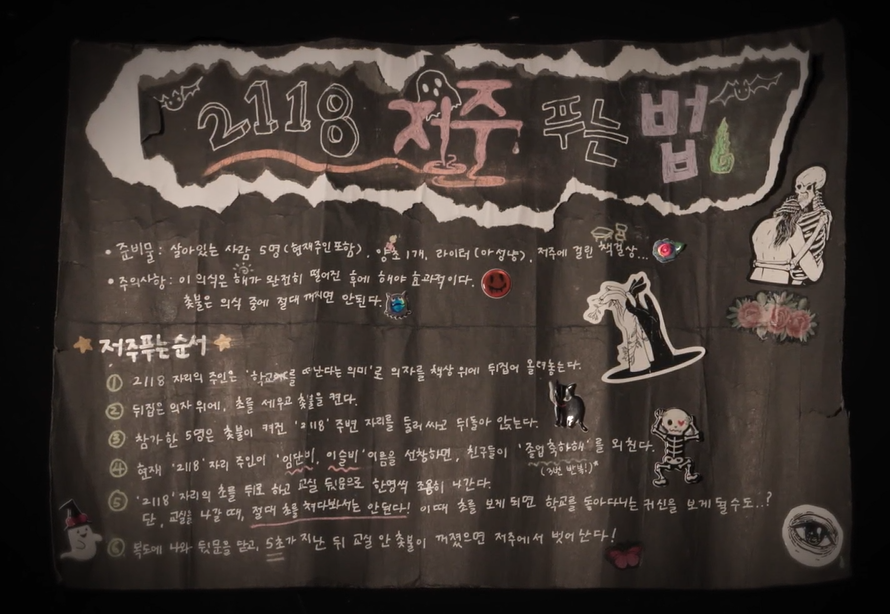 2118 저주 푸는 법
• 준비물 : 살아있는 사람 5명 (현재주인포함), 양초 1개, 라이터 (아 성냥), 저주에 걸린 책걸상...
• 주의사항 : 이 의식은 해가 완전히 떨어진 후에 해야 효과적이다.
촛불은 의식 중에 절대 꺼지면 안된다.
저주푸는순서
① 2118 자리의 주인은 '학교를 떠난다는 의미'로 의자를 책상 위에 뒤집어 올려놓는다.
② 뒤집은 의자 위에, 초를 세우고 촛불을 켠다.
③ 참가한 5명은 촛불이 켜진 '2118' 주변 자리를 둘러 싸고 뒤돌아 앉는다.
④ 현재 '2118' 자리 주인이 '임단비, 이슬비' 이름을 선창하면, 친구들이 '졸업 축하해'를 외친다.
(3번 반복!)*
⑤ '2118' 자리의 초를 뒤로 하고 교실 뒷문으로 한명씩 조용히 나간다.
단, 교실을 나갈 때, 절대 초를 쳐다봐서는 안된다! 이때 초를 보게 되면 학교를 돌아다니는 귀신을 보게 될수도..?
⑥ 복도에 나와 뒷문을 닫고, 5초가 지난 뒤 교실 안 촛불이 꺼졌으면 저주에서 벗어난다!